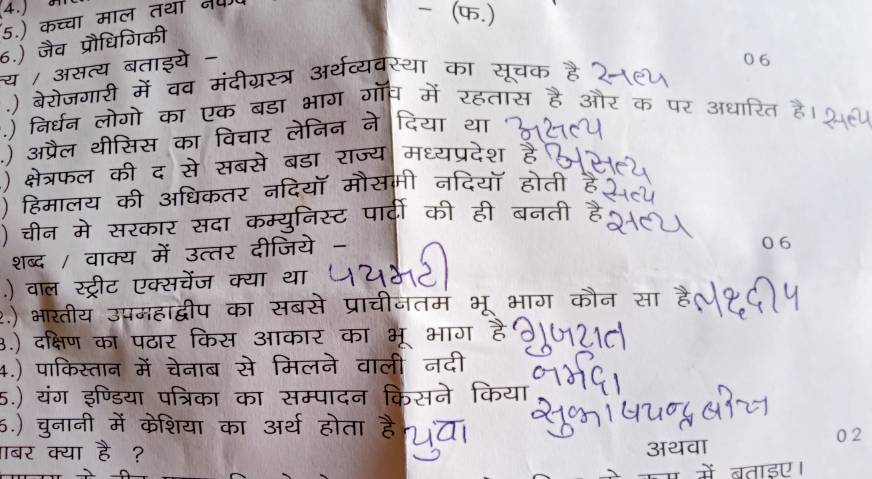 4.)
5.) कच्चा माल तथा
– (फ.)
6.) जैव प्रौधिगिकी
/ असत्य बताइये –
06
.) बेरोजगारी में वव मंदीग्रस्त्र अर्थव्यवस्था का सूचक है सत्य
.) निर्धन लोगो का एक बडा भाग गॉव में रहतास है और क पर अधारित है। सत्य
.) अप्रैल थीसिस का विचार लेनिन ने दिया था असत्य
) क्षेत्रफल की द से सबसे बडा राज्य मध्यप्रदेश है असत्य
) हिमालय की अधिकतर नदियॉ मौसमी नदियॉ होती है सत्य
) चीन मे सरकार सदा कम्युनिस्ट पार्टी की ही बनती है सत्य
शब्द / वाक्य में उत्तर दीजिये –
06
.) वाल स्ट्रीट एक्सचेंज क्या था
2.) भारतीय उपमहाद्वीप का सबसे प्राचीनतम भू भाग कौन सा है लक्षदीप
3.) दक्षिण का पठार किस आकार का भू भाग है गुजरात
4.) पाकिस्तान में चेनाब से मिलने वाली नदी नर्मदा
5.) यंग इण्डिया पत्रिका का सम्पादन किसने किया
6.) चुनानी में क्रेशिया का अर्थ होता है युवा
बर क्या है ?
02
अथवा
में बताइए।